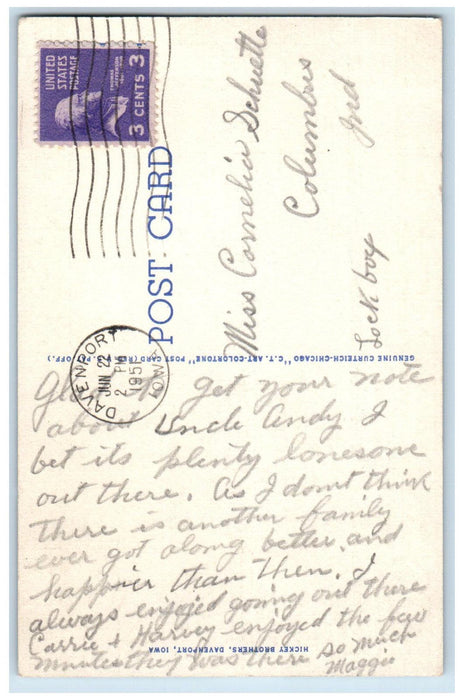 UNITED
STATES
POSTAGE
3 CENTS 3
POST CARD
DAVENPORT
JUN 22
2 PM
195
IOWA
Miss Cornelia Schuette
Columbus
Ind
Lock box
GENUINE CURTEICH-CHICAGO "C.T. ART-COLORTONE" POST CARD (REG. U.S. PAT. OFF.)
Glad to get your note
about Uncle Andy. I
bet its plenty lonesome
out there. As I don't think
there is another family
ever got along better and
happier than them. I
always enjoyed going out there
Carrie + Harvey enjoyed the few
minutes they was there so much
Maggie
HICKEY BROTHERS, DAVENPORT, IOWA